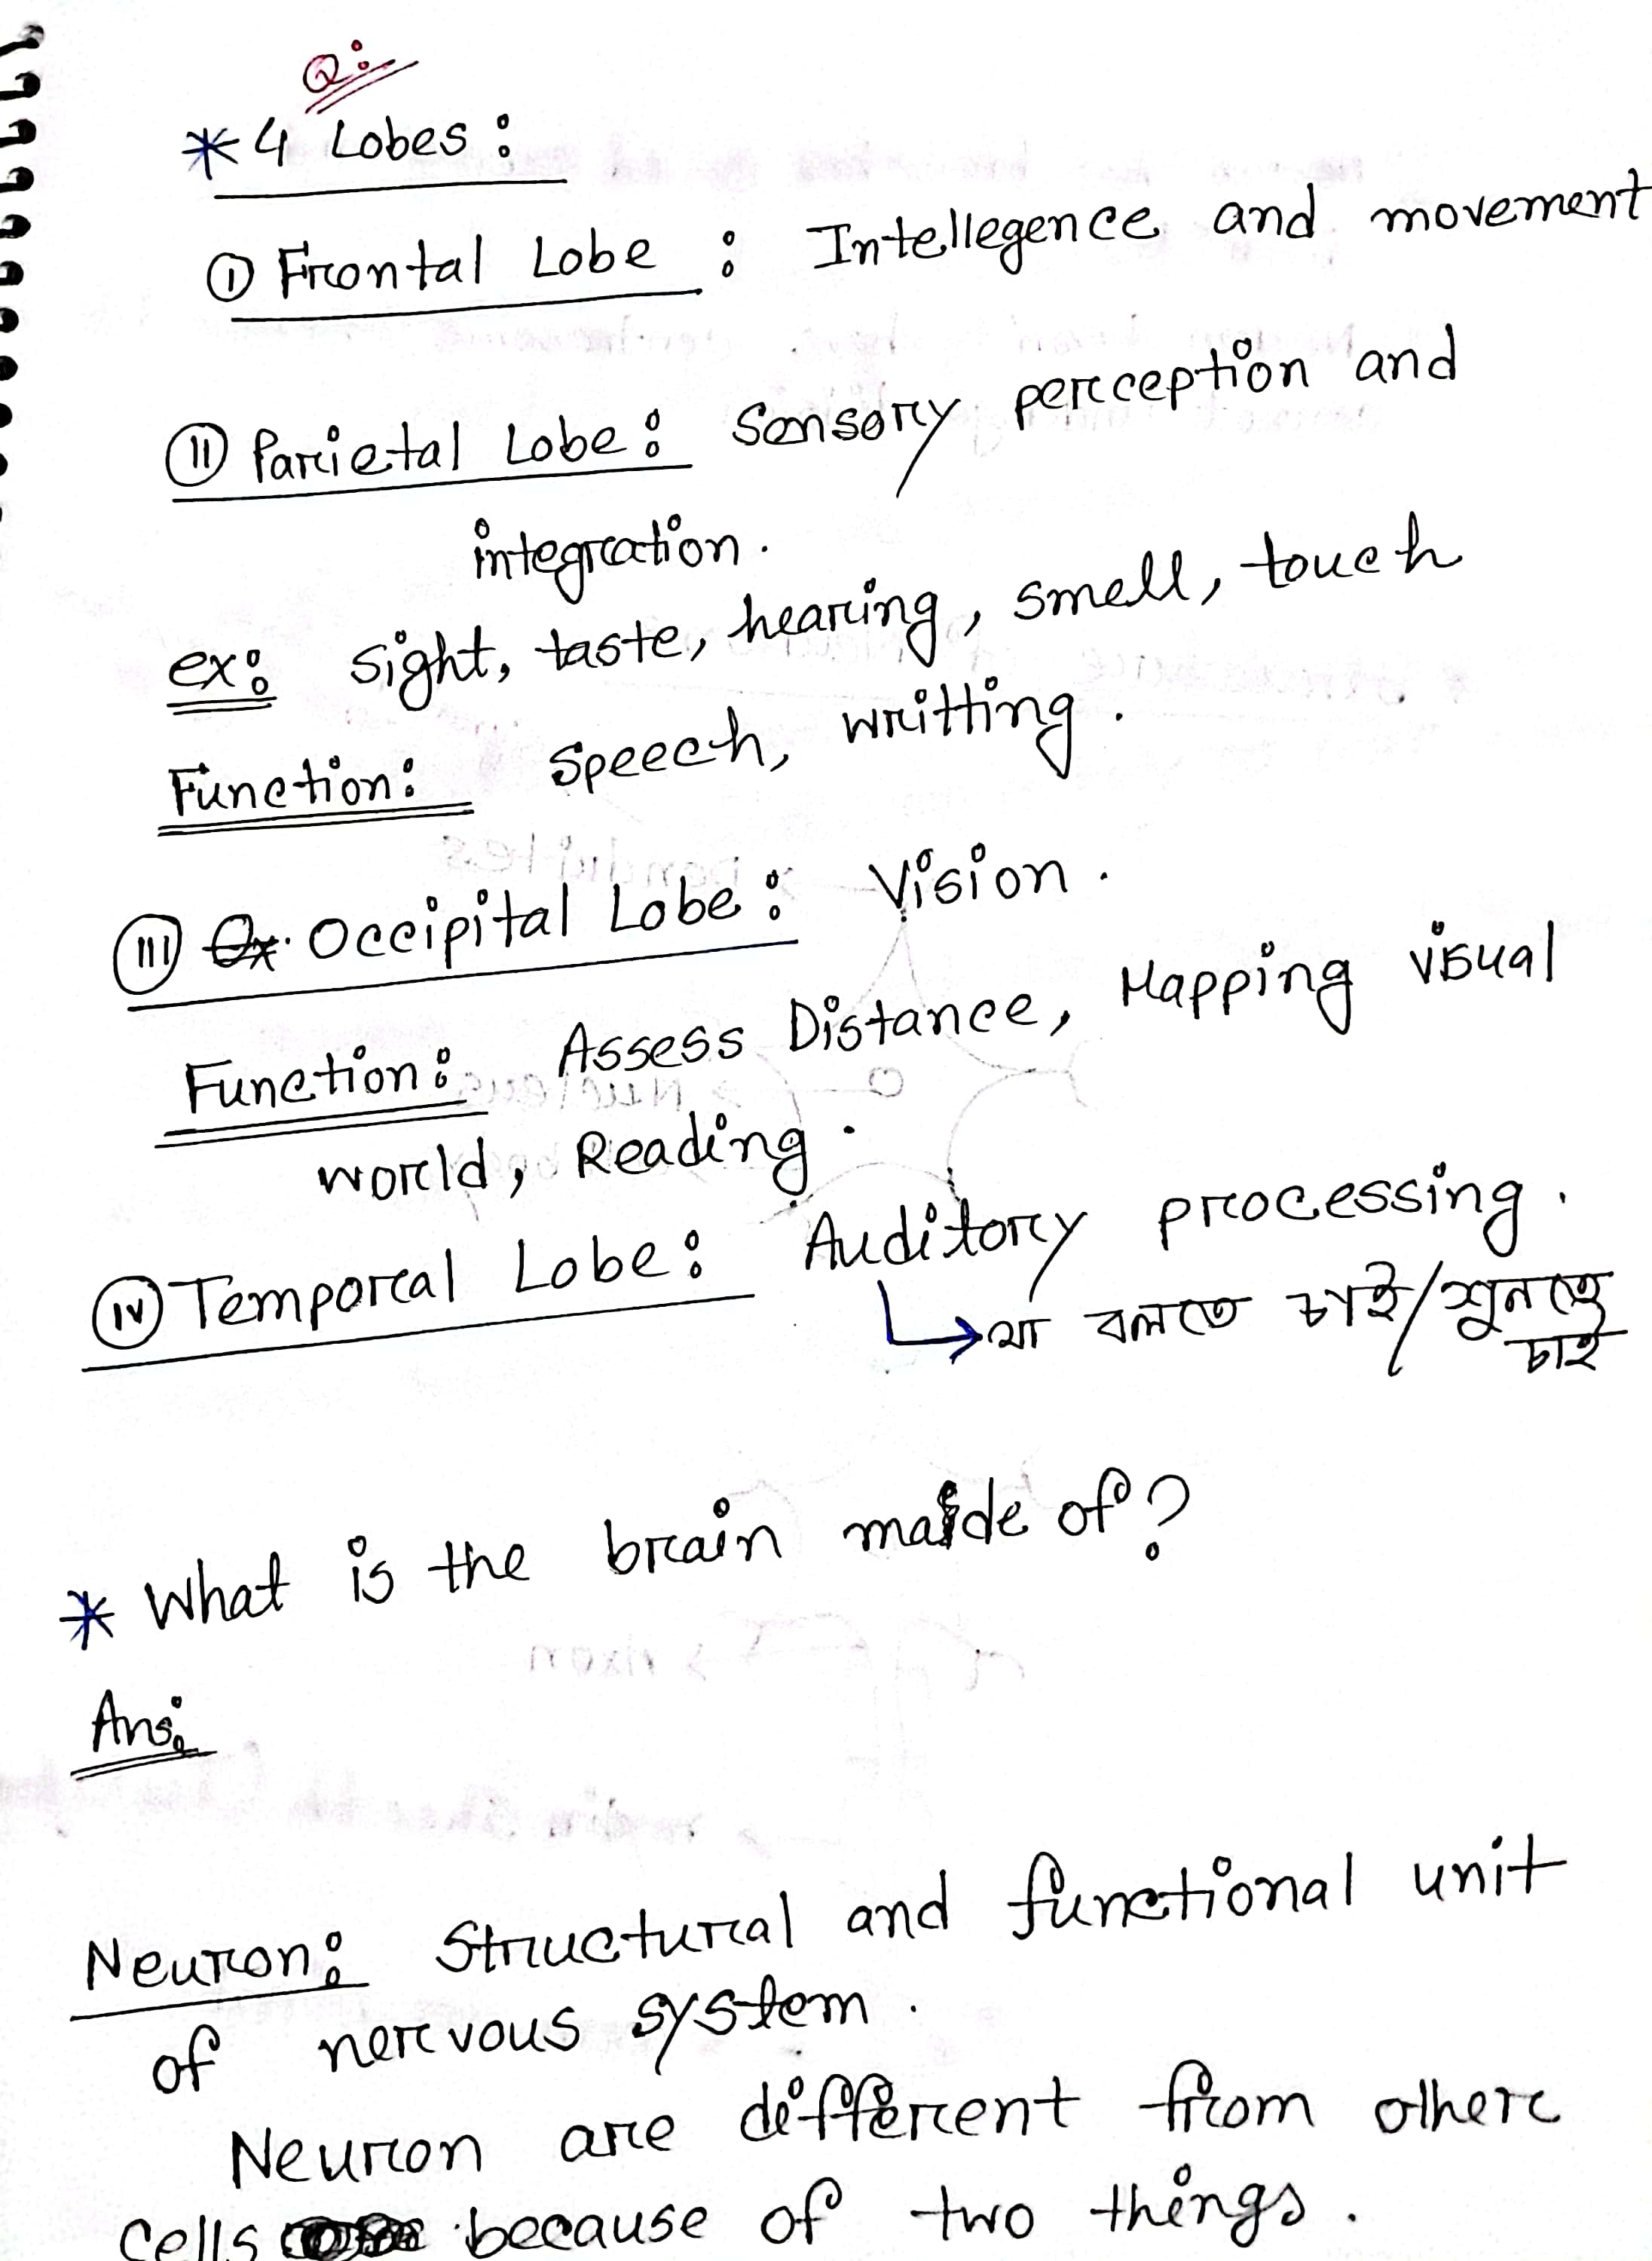 Q:
* 4 Lobes:
① Frontal Lobe : Intellegence and movement
② Parietal Lobe: Sensory perception and
integration.
ex: sight, taste, hearing, smell, touch
Function: speech, writting.
③ Occipital Lobe: Vision.
Function: Assess Distance, Mapping visual
world, Reading.
④ Temporal Lobe: Auditory processing.
যা বলতে চাই/শুনতে
চাই
* What is the brain made of?
Ans:
Neuron: Structural and functional unit
of nervous system.
Neuron are different from other
cells because of two things.